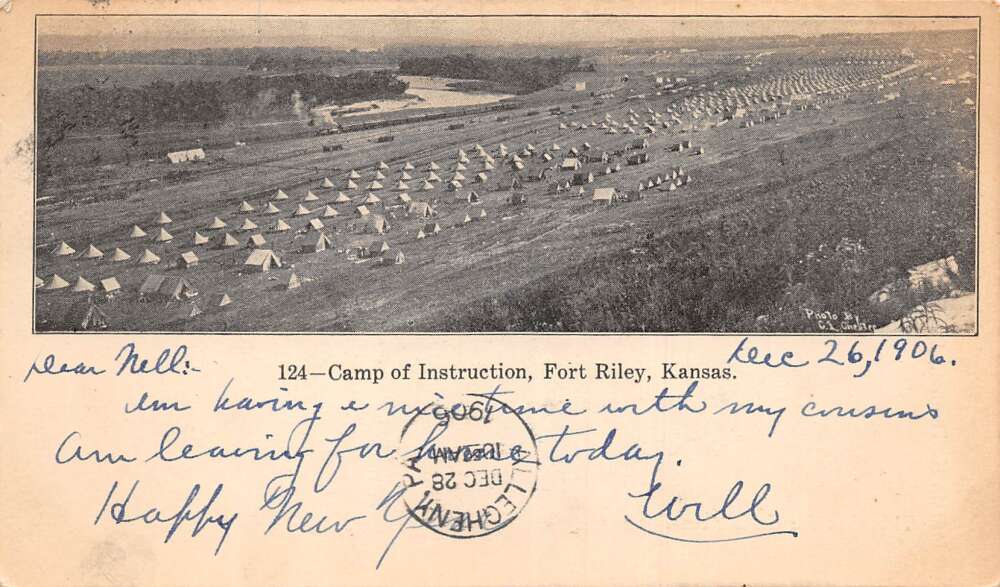 Photo By
C.L. Chester
Dear Nell:-
124—Camp of Instruction, Fort Riley, Kansas.
Dec 26, 1906.
Am having a nice time with my cousins
Am leaving for home today.
Happy New Y
Will
ALLEGHENY PA
DEC 28
10 AM
1906